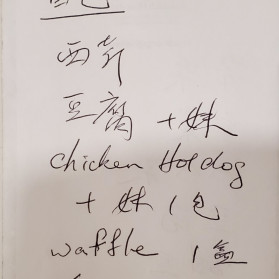 西芹
豆腐 + 妹
chicken Hotdog
+ 妹 1包
waffle 1盒